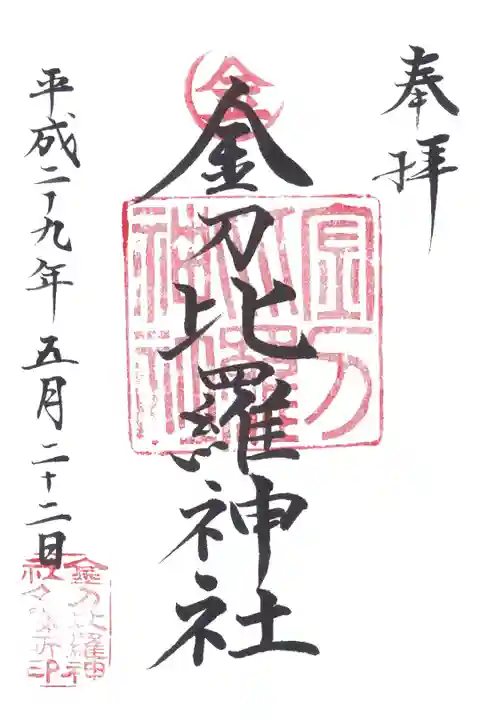 奉拝
金刀比羅神社
平成二十九年五月二十二日
金
金刀比羅神社
金刀比羅神
社々務所印